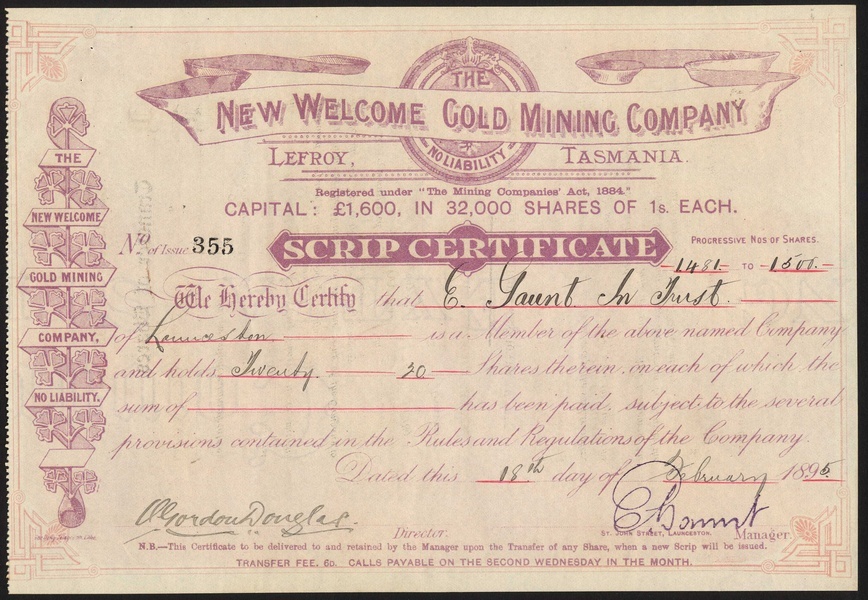 THE
NEW WELCOME GOLD MINING COMPANY
NO LIABILITY
LEFROY, TASMANIA.
Registered under "The Mining Companies' Act, 1884."
CAPITAL: £1,600, IN 32,000 SHARES OF 1s. EACH.
No of Issue 355
SCRIP CERTIFICATE
PROGRESSIVE NOS OF SHARES.
1481 TO 1500
We Hereby Certify that E. Gaunt In Trust.
of Launceston is a Member of the above named Company
and holds Twenty 20 Shares therein, on each of which the
sum of has been paid, subject to the several
provisions contained in the Rules and Regulations of the Company.
Dated this 18th day of February 1895
A Gordon Douglas. Director.
E Gaunt Manager.
ST. JOHN STREET, LAUNCESTON.
N.B.—This Certificate to be delivered to and retained by the Manager upon the Transfer of any Share, when a new Scrip will be issued.
TRANSFER FEE, 6D. CALLS PAYABLE ON THE SECOND WEDNESDAY IN THE MONTH.
THE
NEW WELCOME
GOLD MINING
COMPANY,
NO LIABILITY.